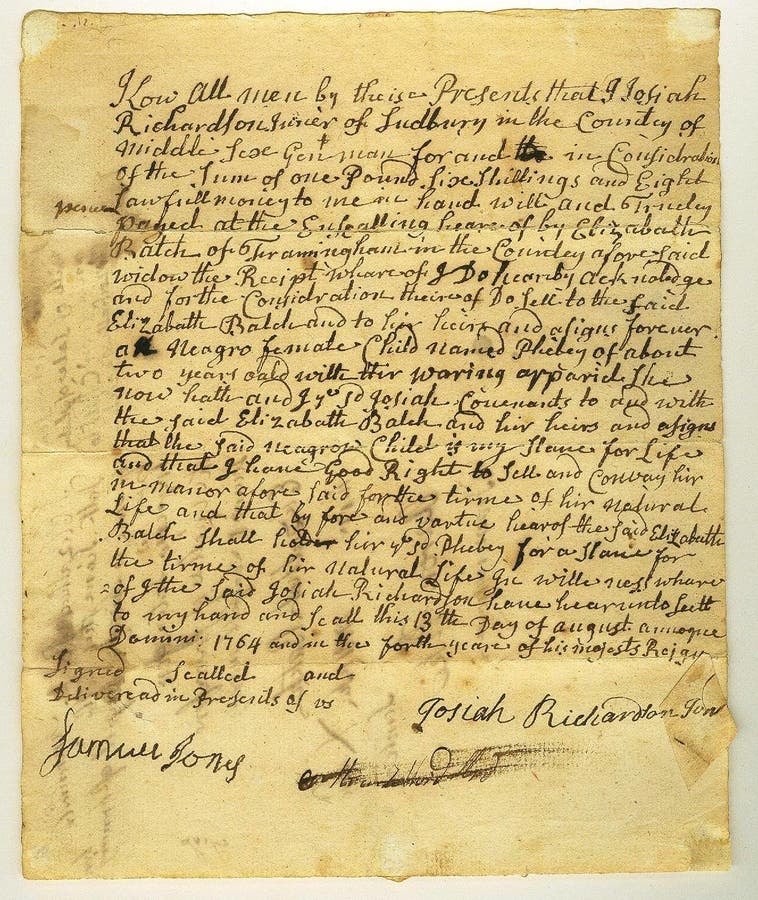 Know All men by theise Presents that I Josiah
Richardson Juner of Sudbury in the Countey of
Middle Sex Gentman for and in Considration
of the Sum of one Pound Six Shillings and Eight
pence Lawfull money to me in hand will and Trueley
payed at the Ensealling hearof by Elizabath
Balch of Framingham in the Countey afore said
widow the Recipt whareof I Do hearby acknoledge
and for the Considration theirof Do Sell to the said
Elizabath Balch and to hir heirs and asigns forever
a Neagro female Child named Phebey of about
two years oald with thir waring apparid She
now hath and I ye sd Josiah Covenants to and with
the said Elizabath Balch and hir heirs and asigns
that the said neagrow Child is my Slave for Life
and that I have Good Right to Sell and Convay hir
in manor afore said for the tirme of hir Natural
Life and that by fore and vartue hearof the said Elizabath
Balch Shall hold hir ye sd Phebey for a Slave for
the tirme of hir Natural Life In willeness whare
of I the said Josiah Richardson have hearunto Sett
to my hand and Seall this 13th Day of august annoque
Domini: 1764 and in the forth yeare of his majests Reign
Signed Sealled and
Delivered in Presents of us
Josiah Richardson Jun
Samuel Jones